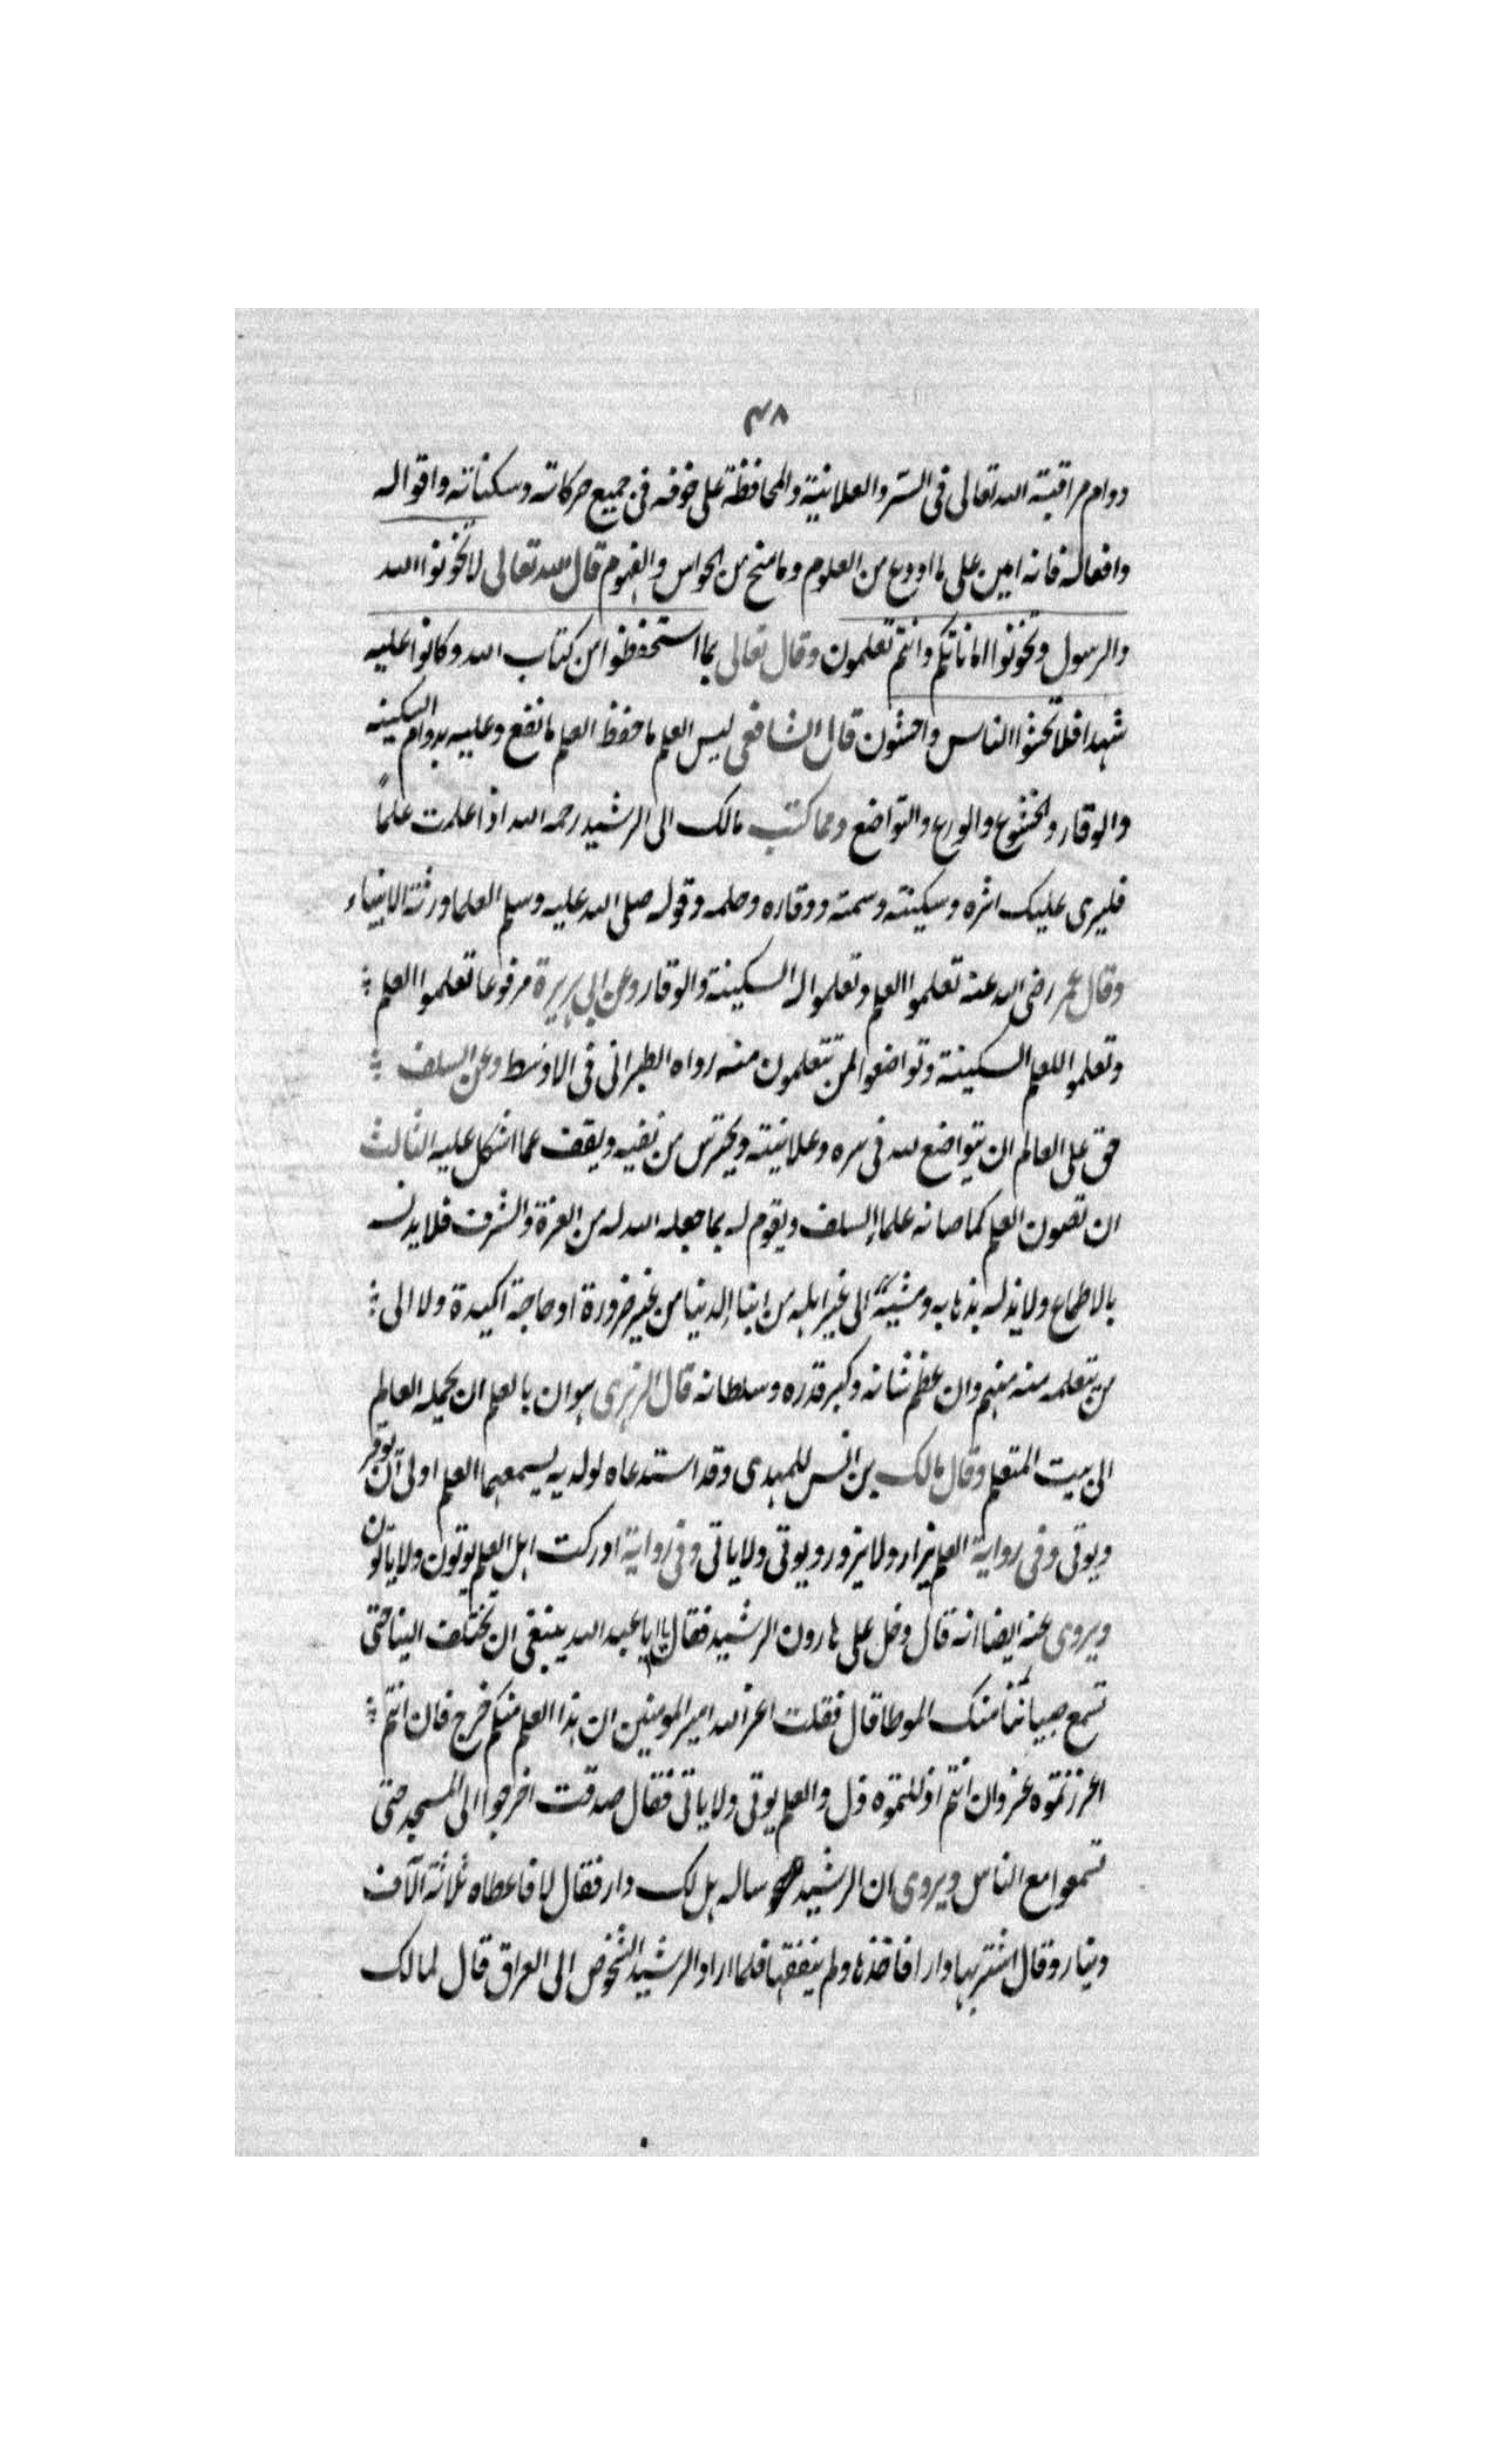 ٤٨
دوام مراقبته الله تعالى فى السر والعلانية والمحافظة على خوفه فى جميع حركاته وسكناته واقواله
وافعاله فانه امين على ما اودع من العلوم وما منح من الحواس والفهوم قال الله تعالى لا تخونوا الله
والرسول وتخونوا اماناتكم وانتم تعلمون وقال تعالى بما استحفظوا من كتاب الله وكانوا عليه
شهدا فلا تخشوا الناس واخشون قال الشافعى ليس العلم ما حفظ العلم ما نفع وعليه بدوام السكينه
والوقار والخشوع والورع والتواضع ومما كتب مالك الى الرشيد رحمه الله اذا علمت علماً
فليرى عليك اثره وسكينته وسمته ووقاره وحلمه وقوله صلى الله عليه وسلم العلما ورثة الانبياء
وقال عمر رضى الله عنه تعلموا العلم وتعلموا له السكينة والوقار وعن ابي هريرة مرفوعا تعلموا العلم
وتعلموا للعلم السكينة وتواضعوا لمن تتعلمون منه رواه الطبرانى فى الاوسط وعن السلف
حق على العالم ان يتواضع لله فى سره وعلانيته ويحترس من نفسه ويقف عما اشكل عليه الثالث
ان تصون العلم كما صانه علماء السلف ويقوم له بما جعله الله له من العزة والشرف فلا يدنسه
بالاطماع ولا يذله بذهابه ومشيه الى غير اهله من ابناء الدنيا من غير ضرورة او حاجة اكيدة ولا الى
من يتعلمه منه منهم وان عظم شانه وكبر قدره وسلطانه قال الزهرى هوان بالعلم ان يحمله العالم
الى بيت المتعلم وقال مالك بن انس للمهدى وقد استدعاه لولديه يسمعهما العلم اولى ان يوقر
ويوتى وفى رواية العلم يزار ولا يزور ويوتى ولا ياتى وفى رواية ادركت اهل العلم يوتون ولا ياتون
ويروى عنه ايضا انه قال دخل على هارون الرشيد فقال يا ابا عبد الله ينبغى ان تختلف الينا حتى
تسمع صبياننا منك الموطا قال فقلت اعز الله امير المومنين ان هذا العلم منكم خرج فان انتم
اعززتموه عز وان انتم اذللتموه ذل والعلم يوتى ولا ياتى فقال صدقت اخرجوا الى المسجد حتى
تسمعوا مع الناس ويروى ان الرشيد ساله هل لك دار فقال لا فاعطاه ثلاثة آلاف
دينار وقال اشتر بها دارا فاخذها ولم ينفقها فلما اراد الرشيد الشخوص الى العراق قال لمالك